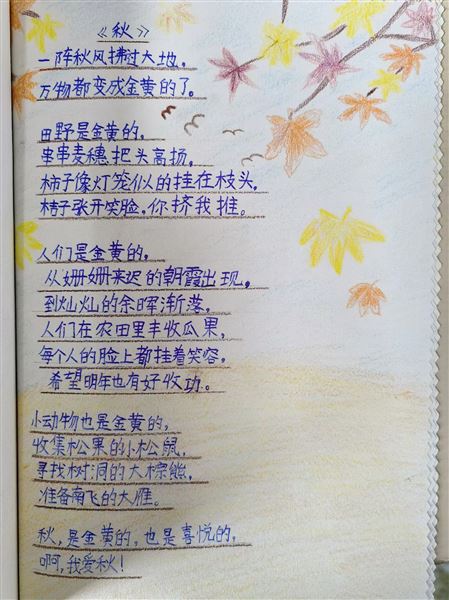 《秋》
一阵秋风拂过大地。
万物都变成金黄的了。
田野是金黄的。
串串麦穗把头高扬。
柿子像灯笼似的挂在枝头。
桔子张开笑脸，你挤我推。
人们是金黄的。
从姗姗来迟的朝霞出现。
到灿灿的余晖渐落，
人们在农田里丰收瓜果，
每个人的脸上都挂着笑容。
希望明年也有好收功。
小动物也是金黄的，
收集松果的小松鼠，
寻找树洞的大棕熊，
准备南飞的大雁。
秋，是金黄的，也是喜悦的，
啊，我爱秋！